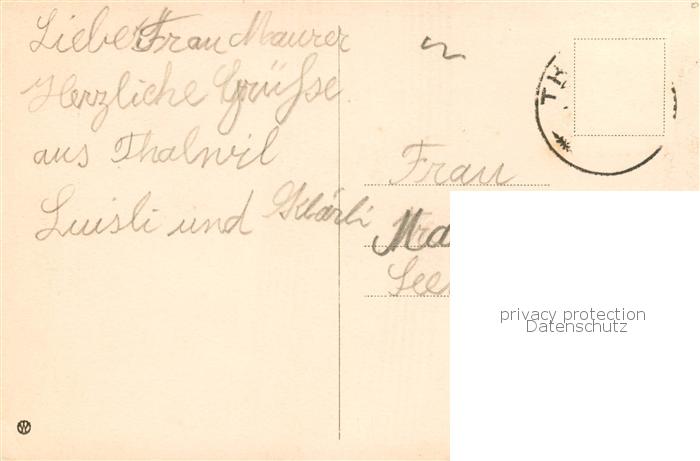 Liebe Frau Maurer
Herzliche Grüsse
aus Thalwil
Luisli und Klärli
Frau
Ma
See
TH
privacy protection
Datenschutz